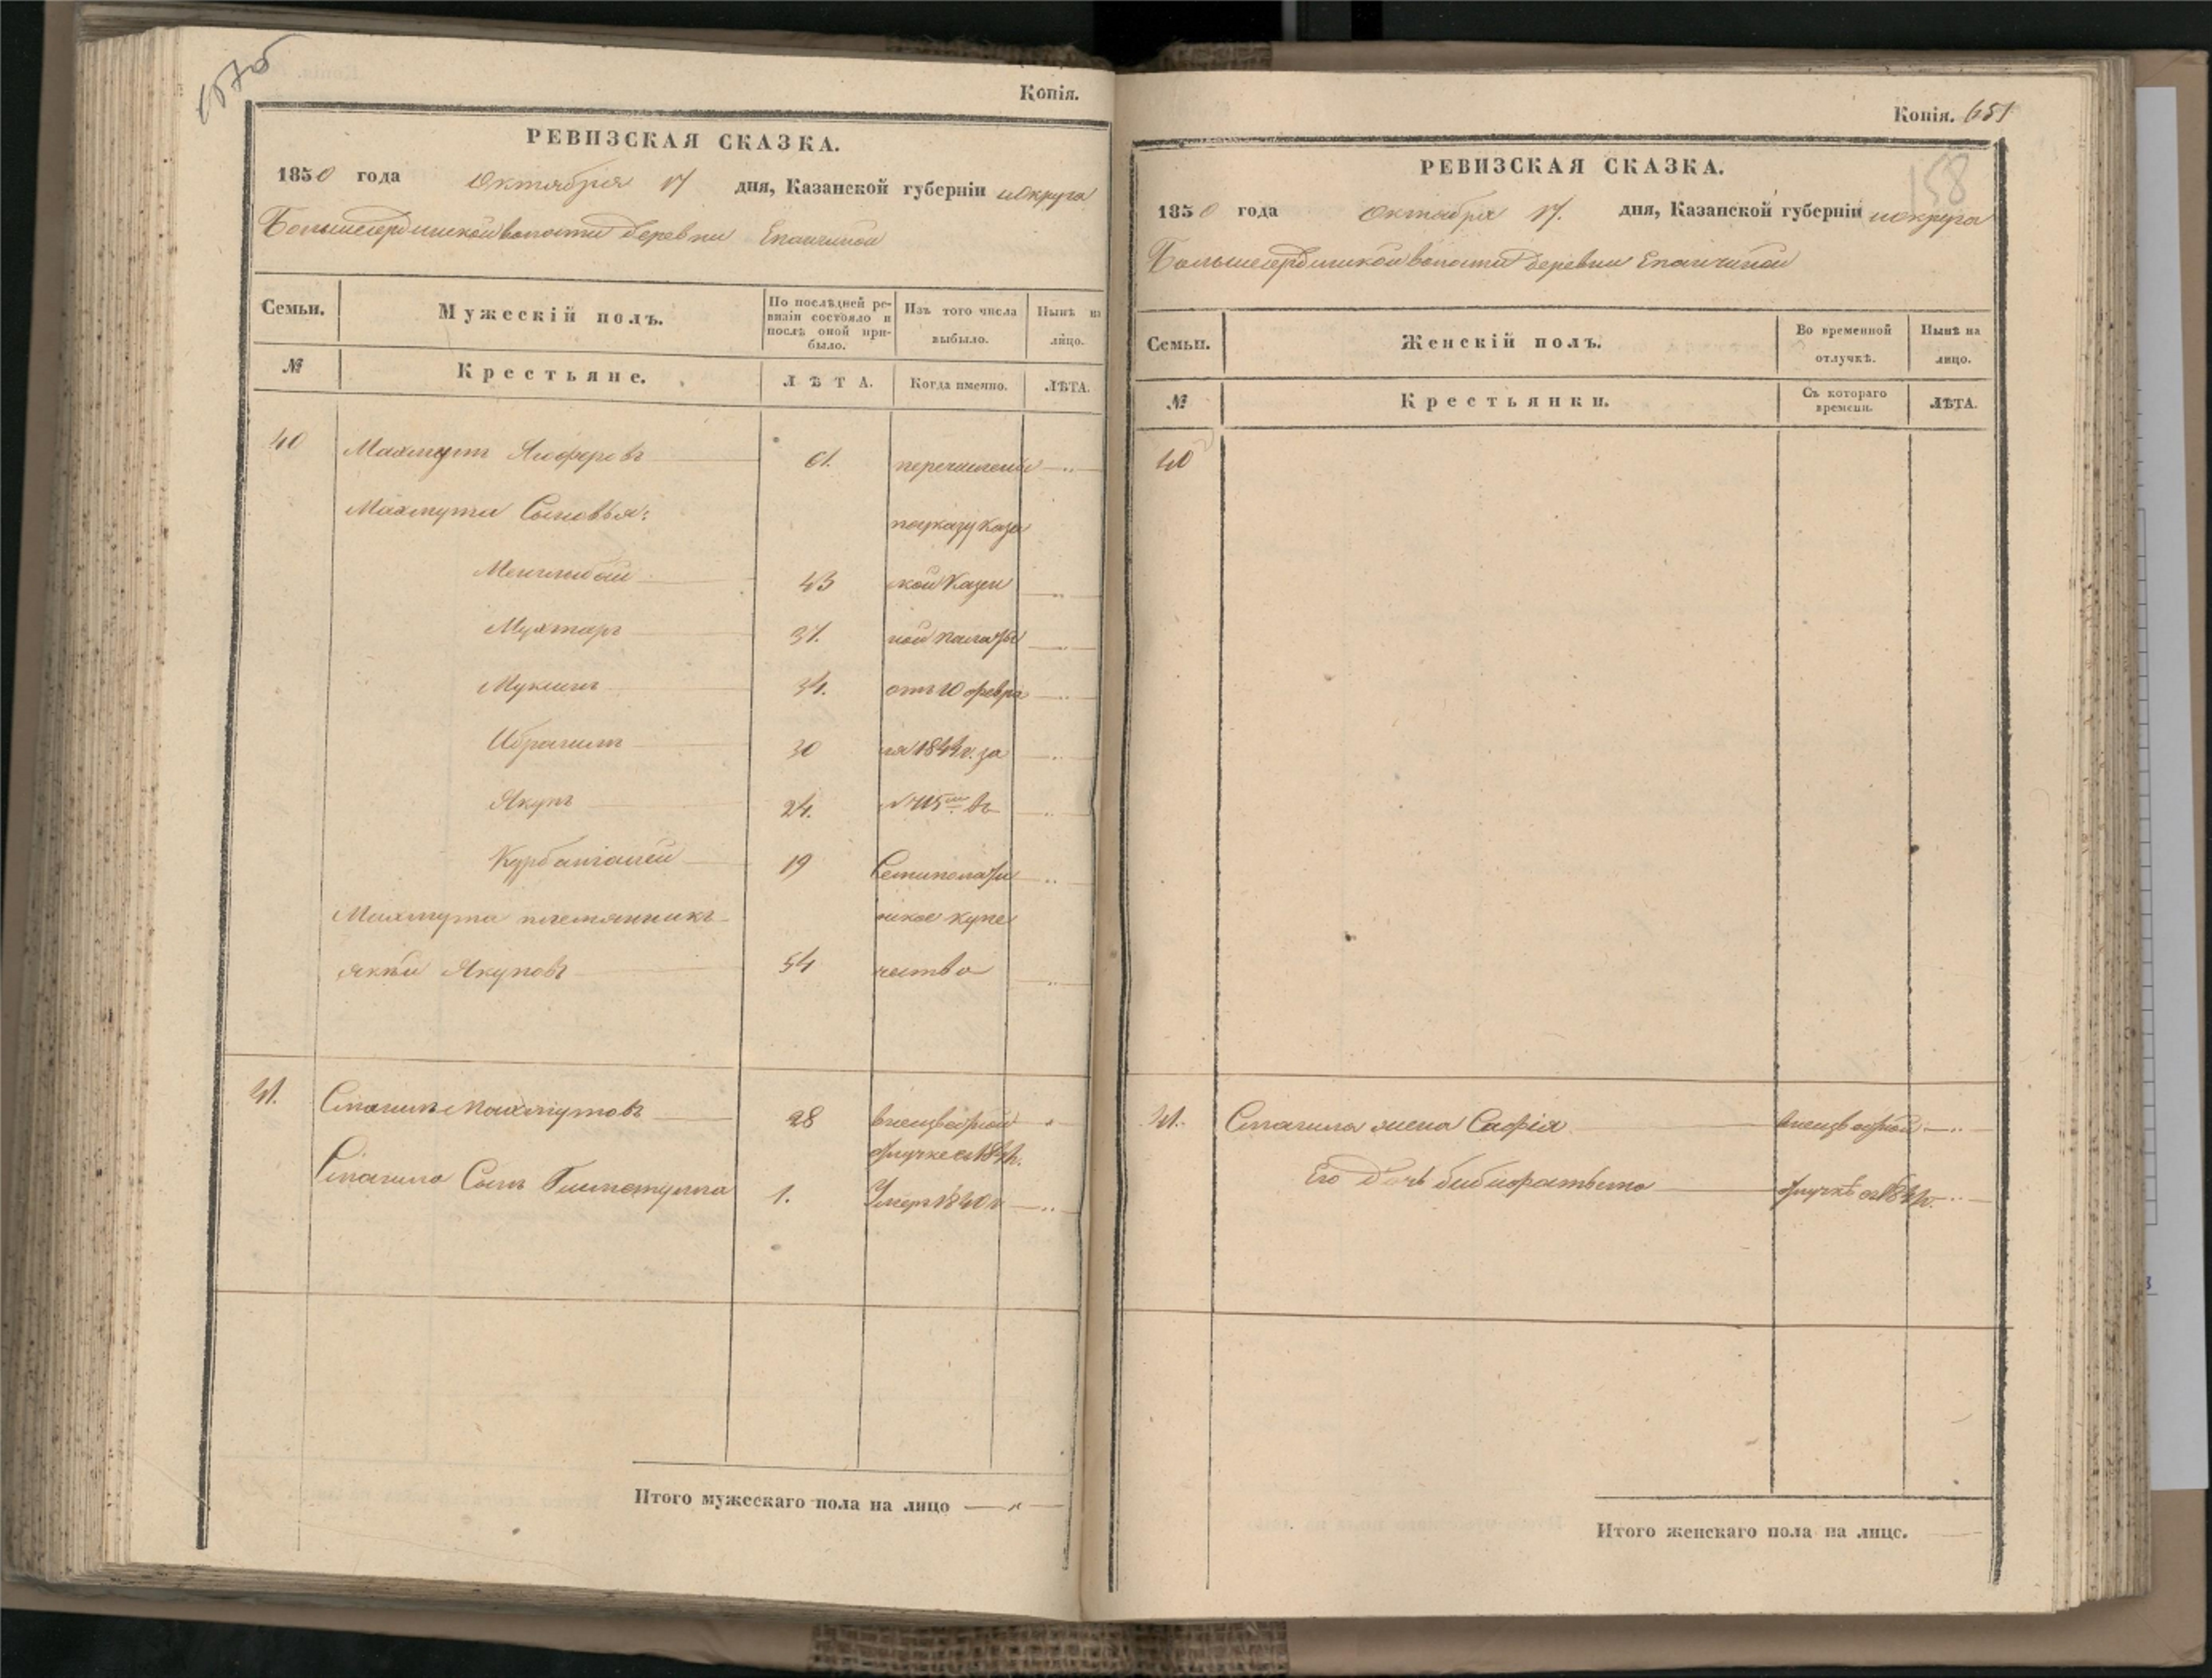 Копія.
РЕВИЗСКАЯ СКАЗКА.
1850 года Октября 17 дня, Казанской губерніи и округа
Большесердинской волости деревни Епанчиной
Семьи.
Мужескій полъ.
По послѣдней ре-
визіи состояло и
послѣ оной при-
было.
Изъ того числа
выбыло.
Нынѣ на
лицо.
№
Крестьяне.
ЛѢТА.
Когда именно.
ЛѢТА.
40 Махмутъ Ягоферовъ 61. перечислены
Махмута Сыновья: по указу Казан
Менглибай 43 ской Казен
Мухтаръ 37. ной палаты
Мукминъ 34. отъ 10 февра
Ибрагимъ 30 ля 1844 г. за
Якупъ 24. в
Курбангалей 19 Семиполати
Махмута племянникъ нское купе
Якуповъ 54 чество
41. Смагилъ Махмутовъ 28 в неизвѣстной
отлучке с 184 г.
Смагила Сынъ 1. Умеръ 1840 г.
Итого мужескаго пола на лицо
Копія. 651
158
РЕВИЗСКАЯ СКАЗКА.
1850 года Октября 17. дня, Казанской губерніи и округа
Большесердинской волости деревни Епанчиной
Семьи.
Женскій полъ.
Во временной
отлучкѣ.
Нынѣ на
лицо.
№
Крестьянки.
Съ котораго
времени.
ЛѢТА.
40
41. Смагила жена Сафія в неизвѣстной
Его дочь отлучкѣ съ
Итого женскаго пола на лицо.